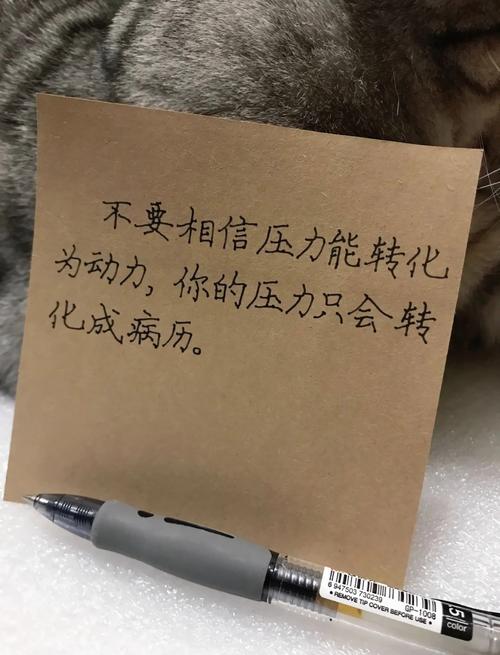 不要相信压力能转化
为动力,你的压力只会转
化成病历。
6 947503 730239
• REMOVE TIP COVER BEFORE USE •
GP-1008
5
color